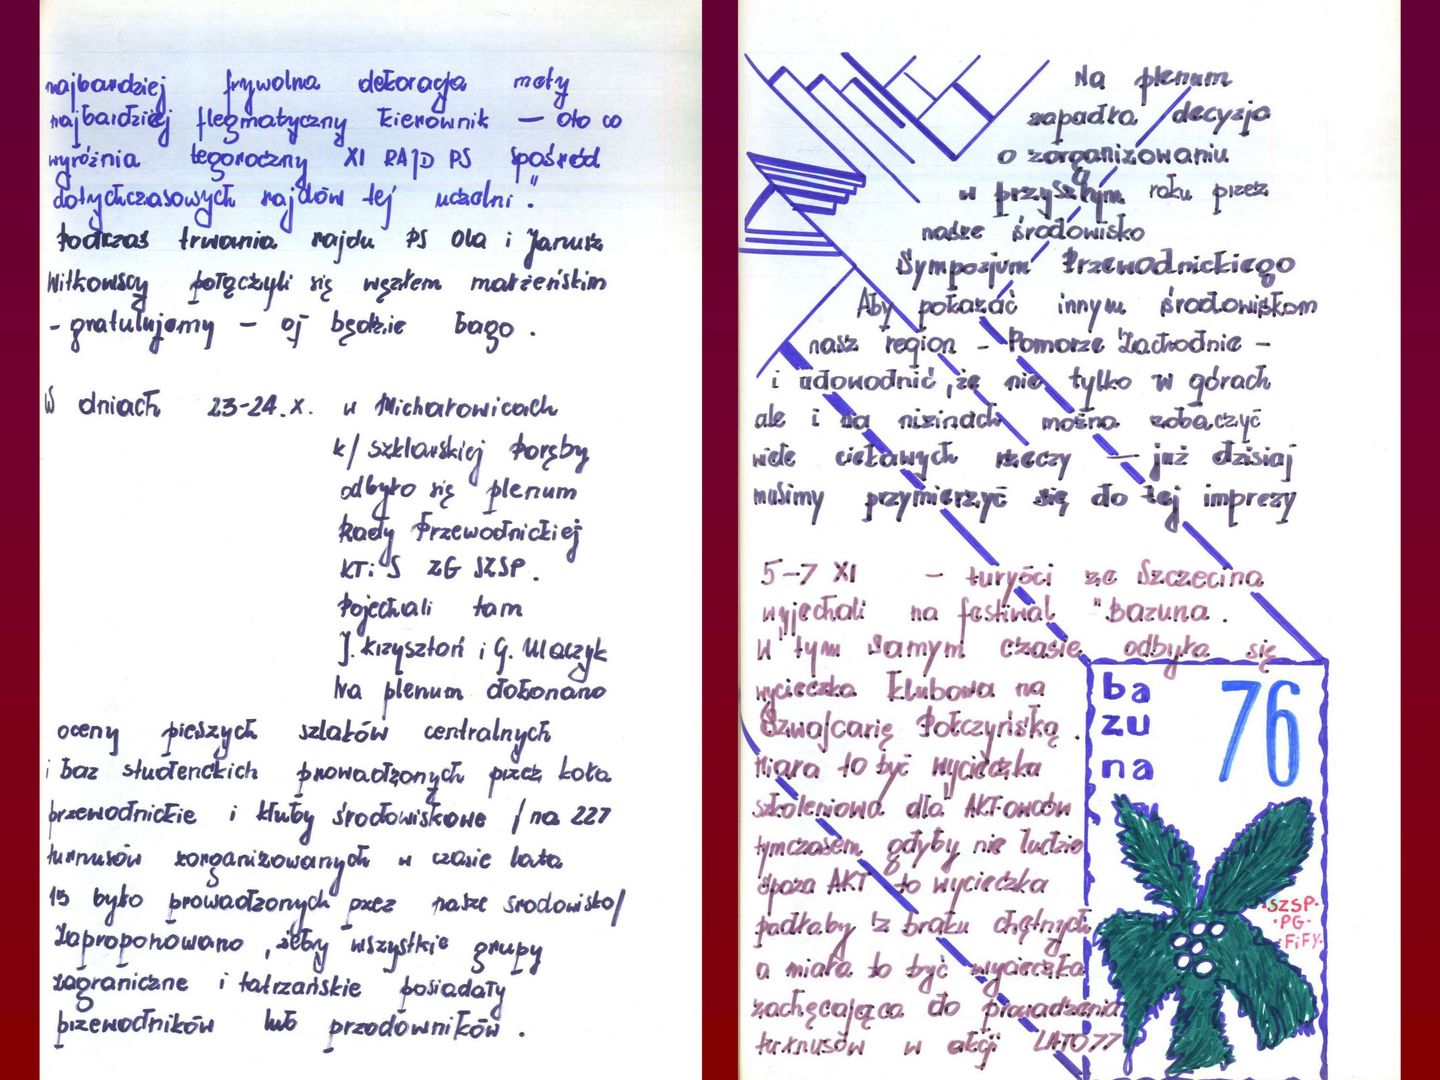 najbardziej frywolna dekoracja mety
najbardziej flegmatyczny kierownik — oto co
wyróżnia tegoroczny XI RAJD PS spośród
dotychczasowych rajdów tej uczelni".
Podczas trwania rajdu PS Ola i Janusz
Witkowscy połączyli się węzłem małżeńskim
- gratulujemy - oj będzie bago.
W dniach 23-24.X. w Michałowicach
k/ Szklarskiej Poręby
odbyło się plenum
Rady Przewodnickiej
KTiS ZG SZSP.
Pojechali tam
J. Krzysztoń i G. Walczyk
Na plenum dokonano
oceny pieszych szlaków centralnych
i baz studenckich prowadzonych przez koła
przewodnickie i kluby środowiskowe /na 227
turnusów zorganizowanych w czasie lata
15 było prowadzonych przez nasze środowisko/
Zaproponowano, żeby wszystkie grupy
zagraniczne i tatrzańskie posiadały
przewodników lub przodowników.
Na plenum
zapadła decyzja
o zorganizowaniu
w przyszłym roku przez
nasze środowisko
Sympozjum Przewodnickiego
Aby pokazać innym środowiskom
nasz region - Pomorze Zachodnie -
i udowodnić, że nie tylko w górach
ale i na nizinach można zobaczyć
wiele ciekawych rzeczy — już dzisiaj
musimy przymierzyć się do tej imprezy
5-7 XI - turyści ze Szczecina
wyjechali na festiwal "Bazuna.
W tym samym czasie odbyła się
wycieczka klubowa na
Szwajcarię Połczyńską.
Miała to być wycieczka
szkoleniowa dla AKT-owców
tymczasem gdyby nie ludzie
spoza AKT to wycieczka
padłaby z braku chętnych
a miała to być wycieczka
zachęcająca do prowadzenia
turnusów w akcji LATO77
ba
zu
na
76
SZSP-
·PG-
FiFY-